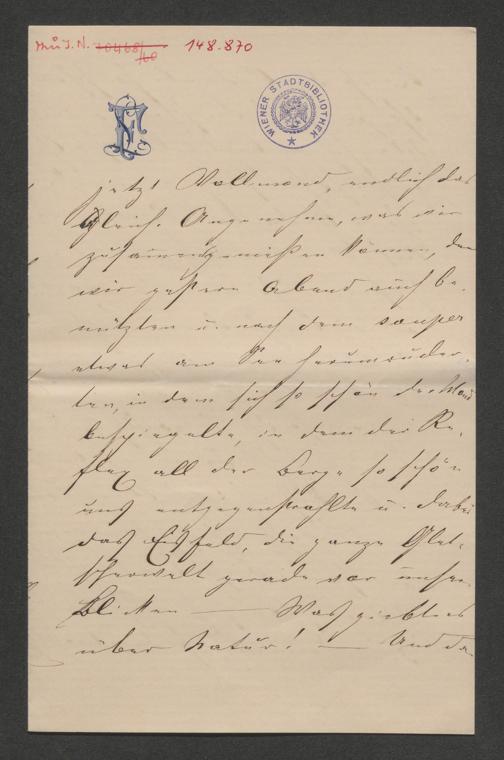 148.870
WIENER STADTBIBLIOTHEK
jetzt Vollmond, endlich das
Gleich. Angenehme, was wir
zusammengenießen können, den
wir gestern Abend auch be-
nützten u. nach dem souper
etwas am See herumruder-
ten, in dem sich so schön der Mond
bespiegelte, in dem der Re-
flex all der Berge so schön
uns entgegenstrahlte u. dabei
das Eisfeld, die ganze Glet-
scherwelt gerade vor unsern
Blicken — Was giebt es
über Natur! — Und da